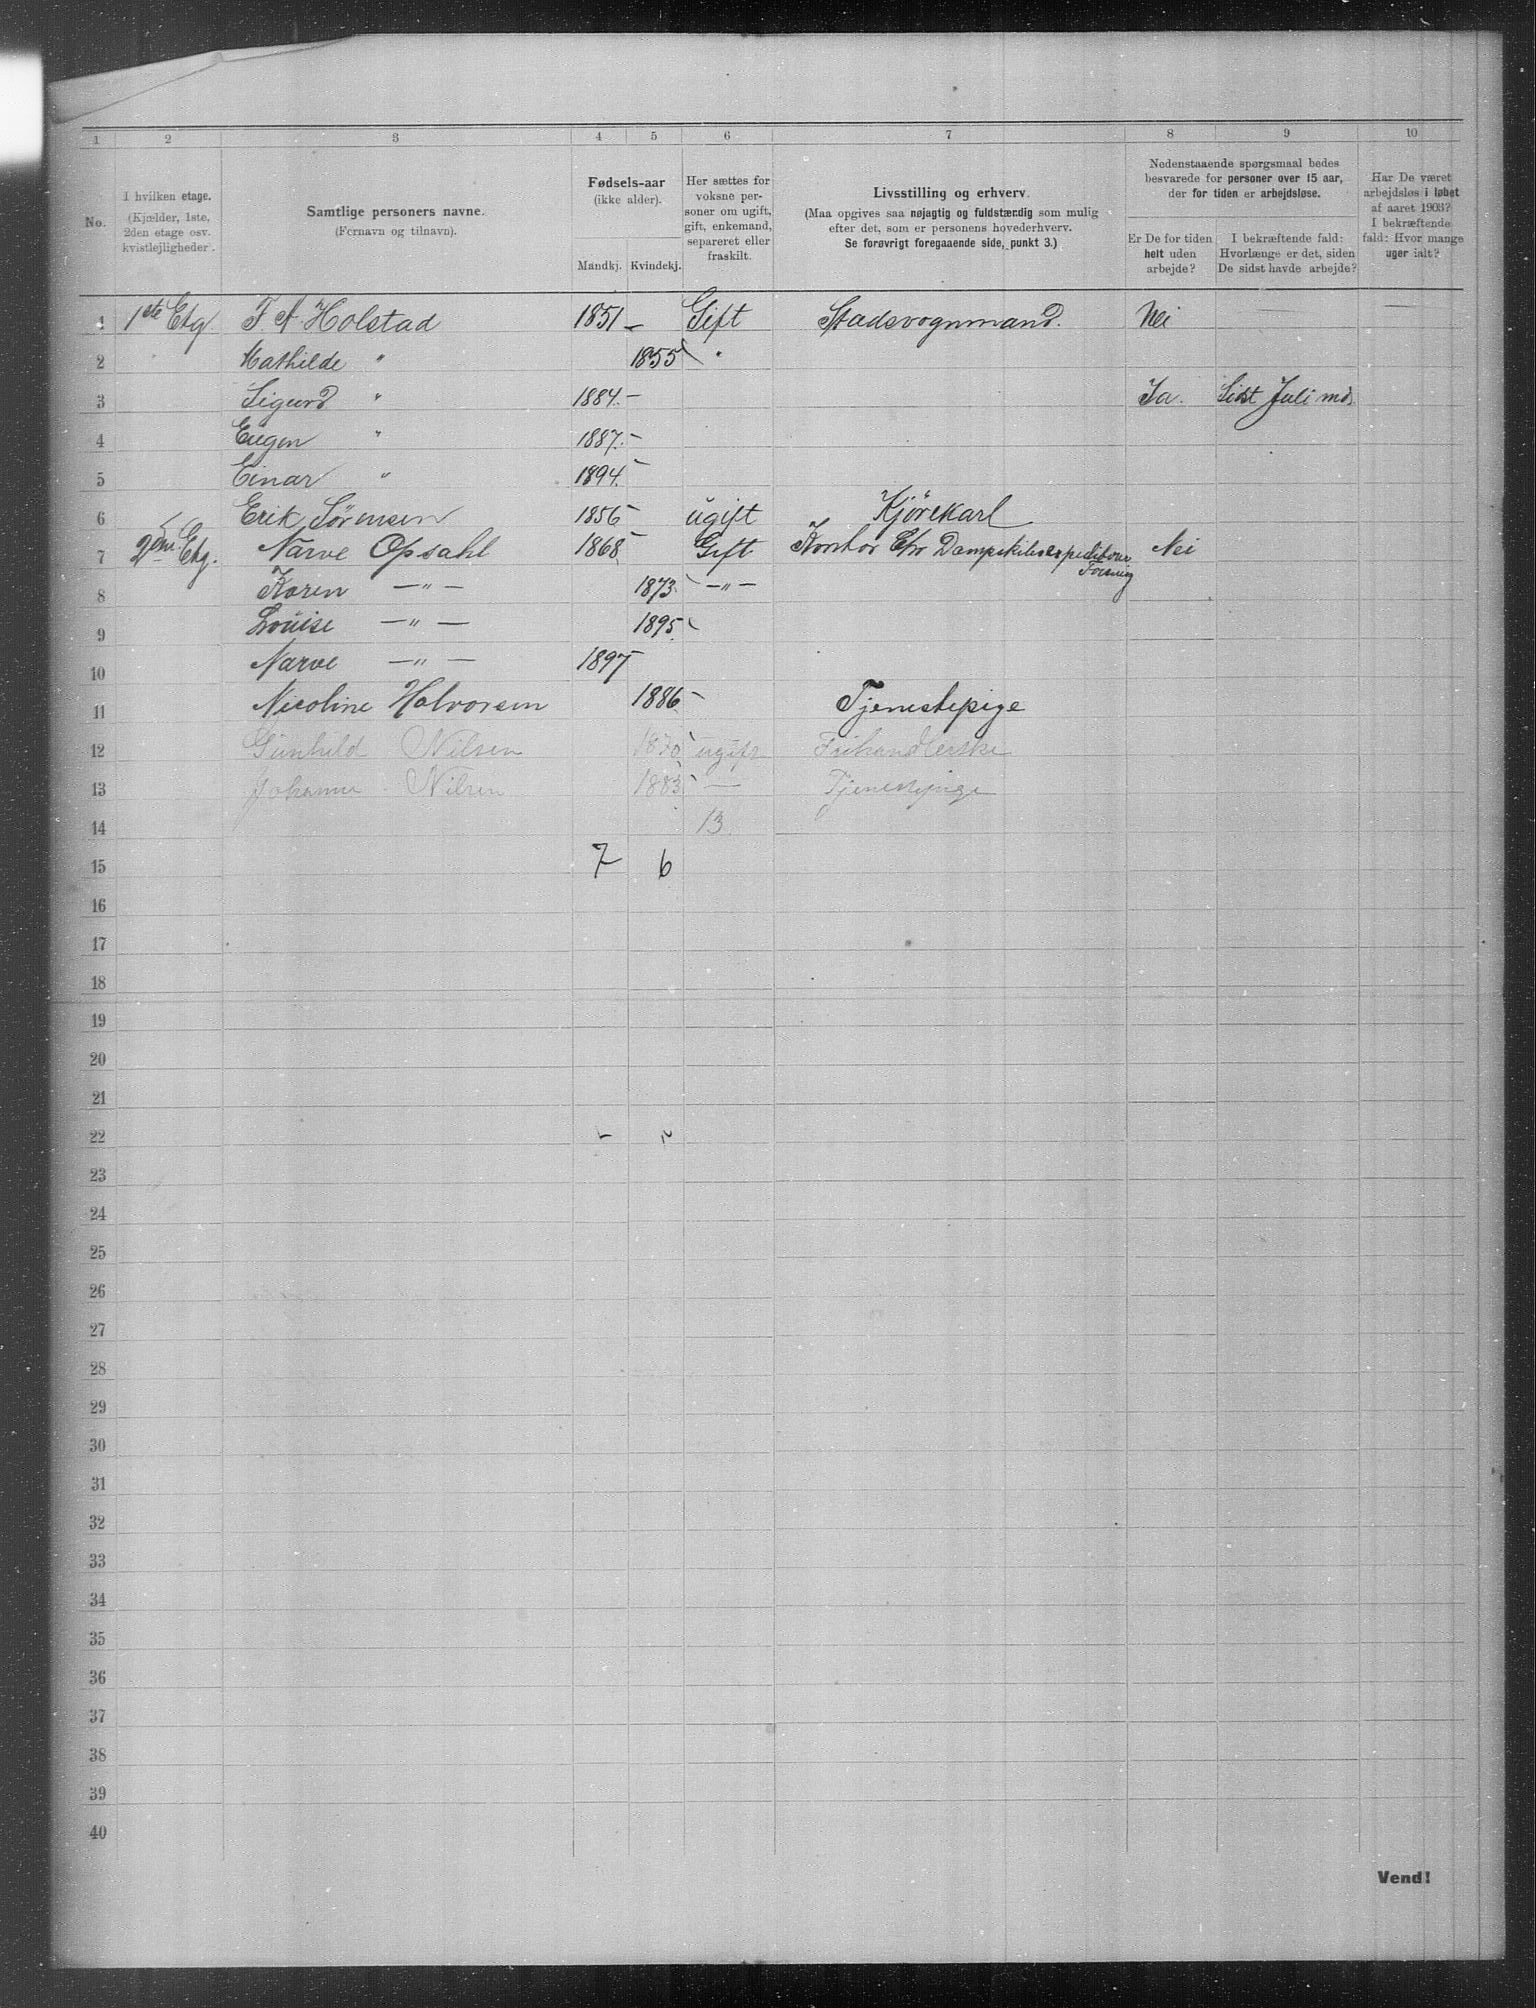 1 2 3 4 5 6 7 8 9 10
No.
I hvilken etage.
(Kjælder, 1ste,
2den etage osv.
kvistlejligheder.
Samtlige personers navne.
(Fornavn og tilnavn).
Fødsels-aar
(ikke alder).
Mandkj. Kvindekj.
Her sættes for
voksne per-
soner om ugift,
gift, enkemand,
separeret eller
fraskilt.
Livsstilling og erhverv.
(Maa opgives saa nøjagtig og fuldstændig som mulig
efter det, som er personens hovederhverv.
Se forøvrigt foregaaende side, punkt 3.)
Nedenstaaende spørgsmaal bedes
besvarede for personer over 15 aar,
der for tiden er arbejdsløse.
Er De for tiden
helt uden
arbejde?
I bekræftende fald:
Hvorlænge er det, siden
De sidst havde arbejde?
Har De været
arbejdsløs i løbet
af aaret 1903?
I bekræftende
fald: Hvor mange
uger ialt?
1 1ste Etg. F. A Holstad 1851 – Gift Stadsvognmand. Nei
2 Mathilde " 1855 "
3 Sigurd " 1884 – Ja. Sidst Juli md.
4 Eugen " 1887 –
5 Einar " 1894 –
6 Erik Sörensen 1856 – ugift Kjörekarl
7 2den Etg. Narve Opsahl 1868 – Gift Kontor Chr Dampskibsexpeditions Nei
Forening
8 Karen —"— 1873 —"—
9 Louise —"— 1895
10 Narve —"— 1897
11 Nicoline Halvorsen 1886 – Tjenestepige
12 Gunhild Nilsen 1870 ugift Frihandlerske
13 Johanne Nilsen 1883 — Tjenestepige
14 13
15 7 6
16
17
18
19
20
21
22
23
24
25
26
27
28
29
30
31
32
33
34
35
36
37
38
39
40
Vend!